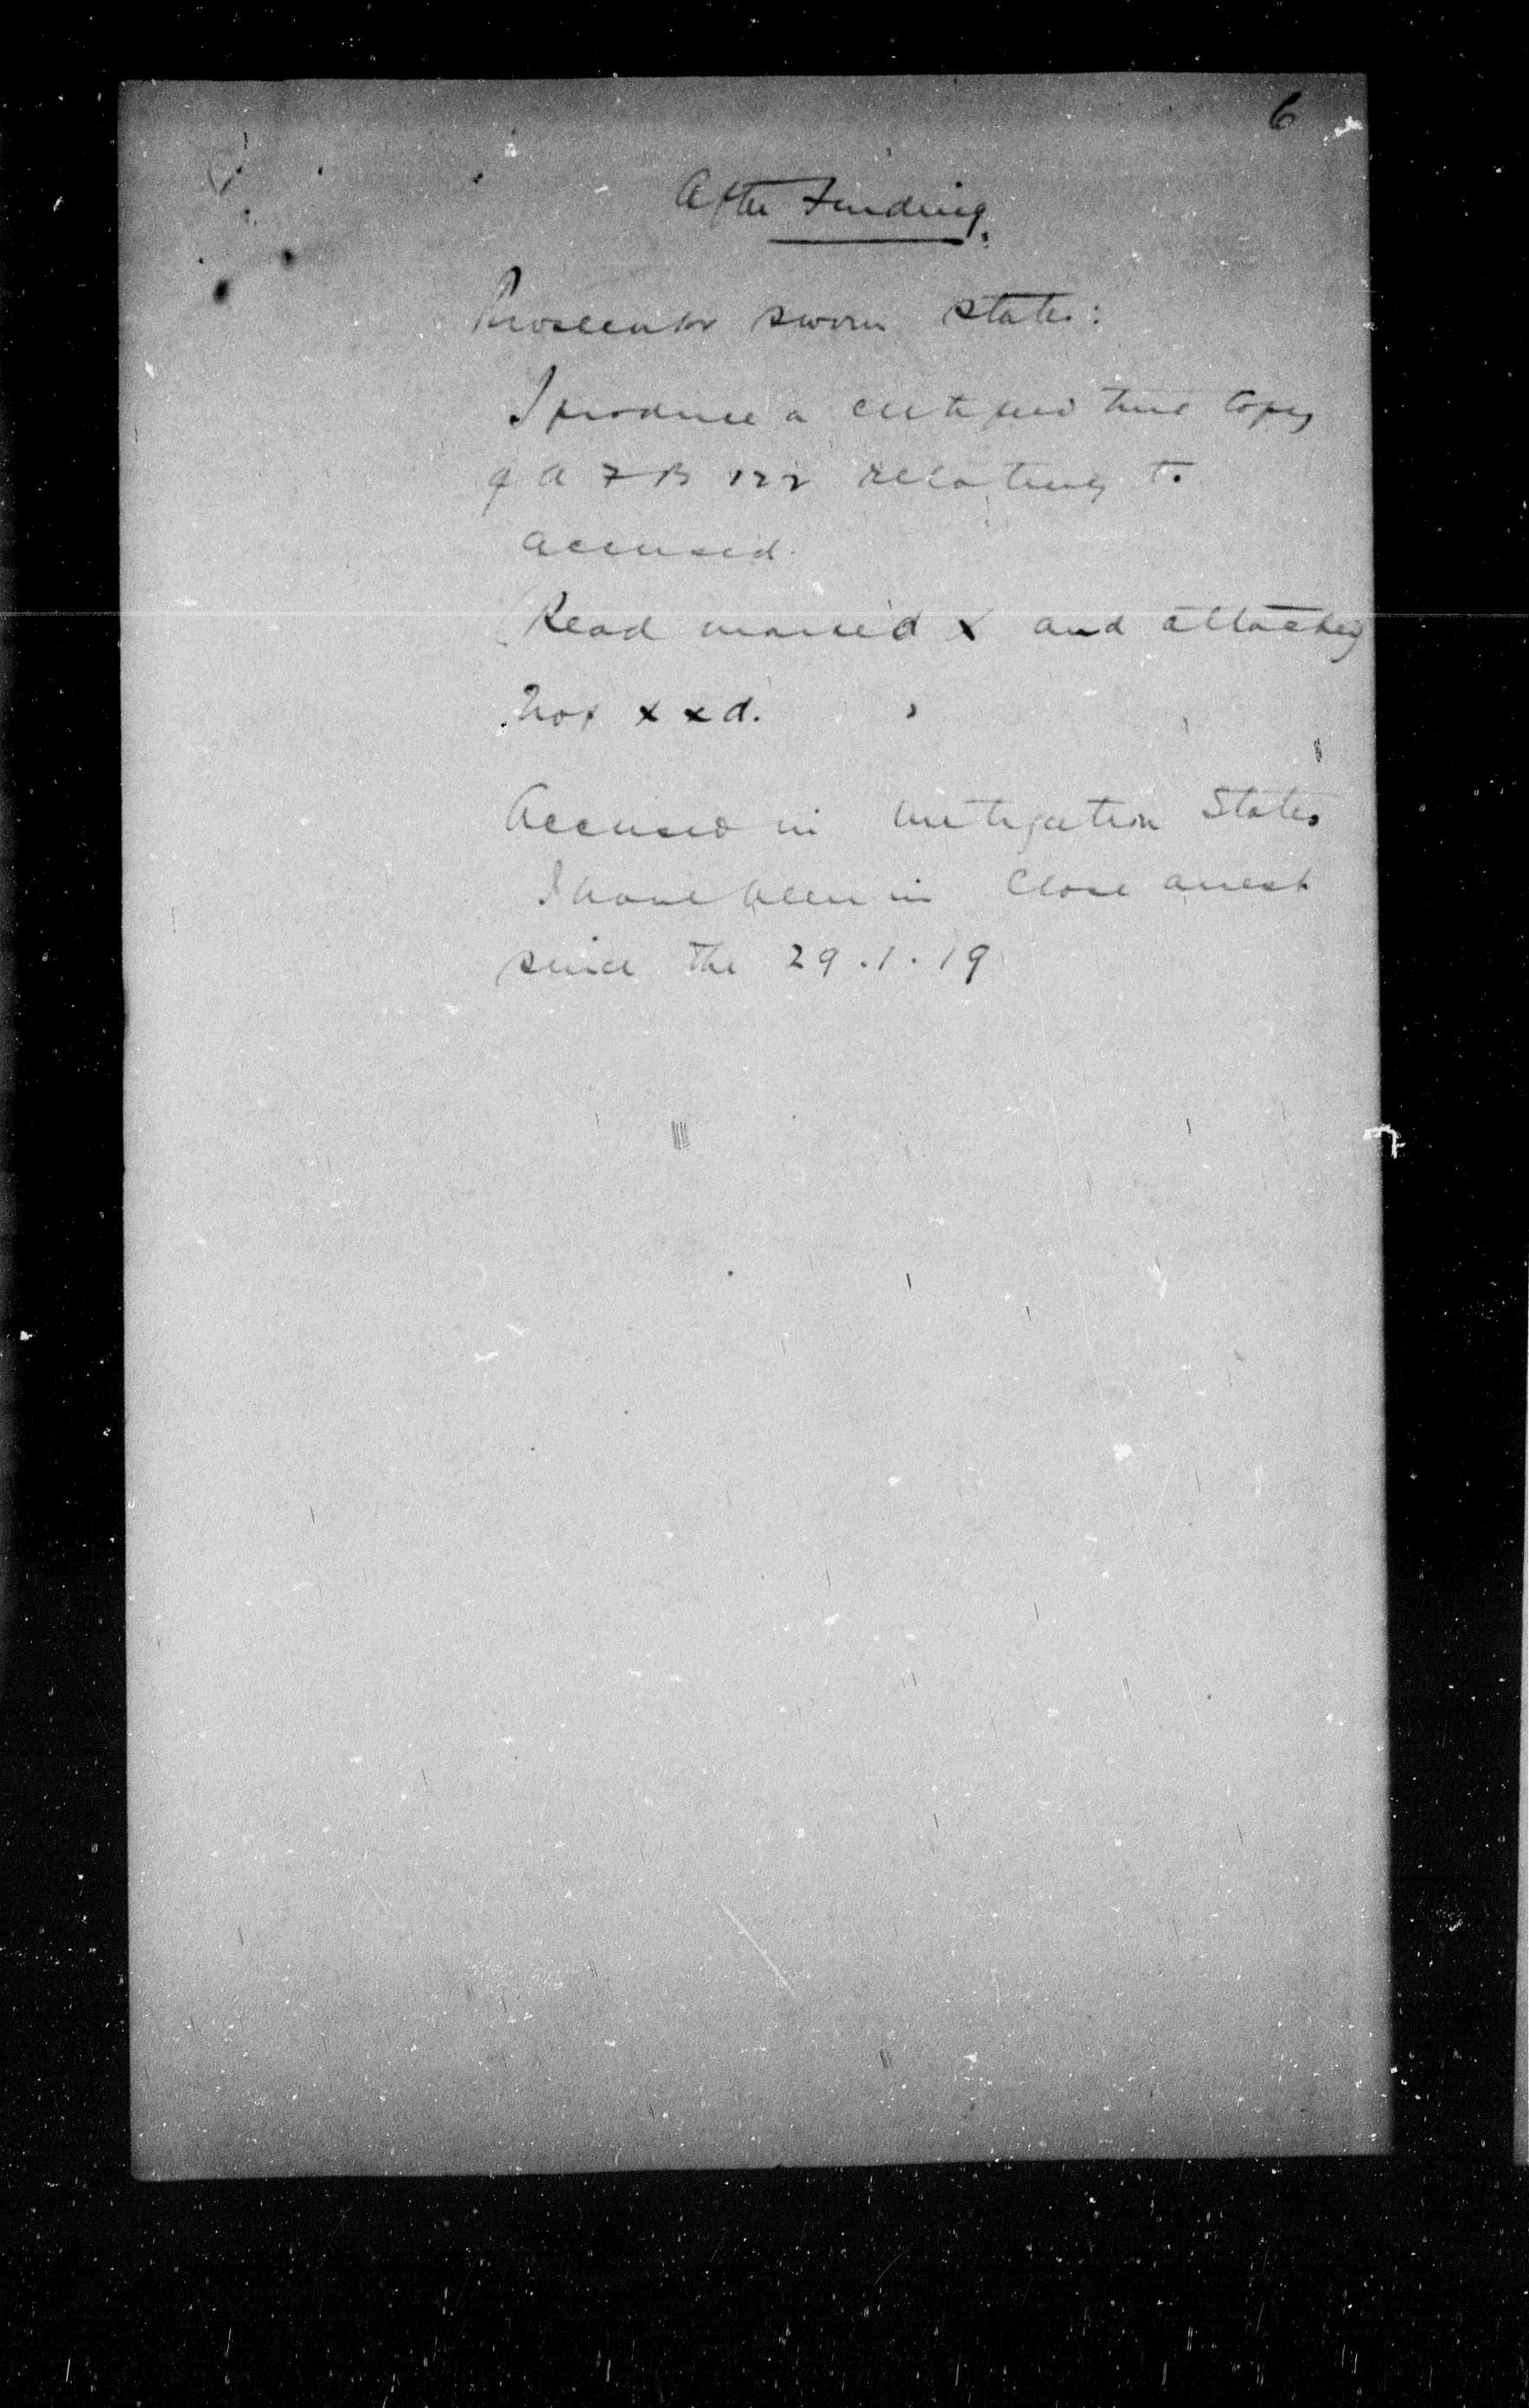 6
After Finding.
Prosecutor sworn states:
I produce a certified true copy
of A F B 122 relating to
accused.
(Read marked X and attached)
Not x x d.
Accused in mitigation States
I have been in Close arrest
since the 29.1.19